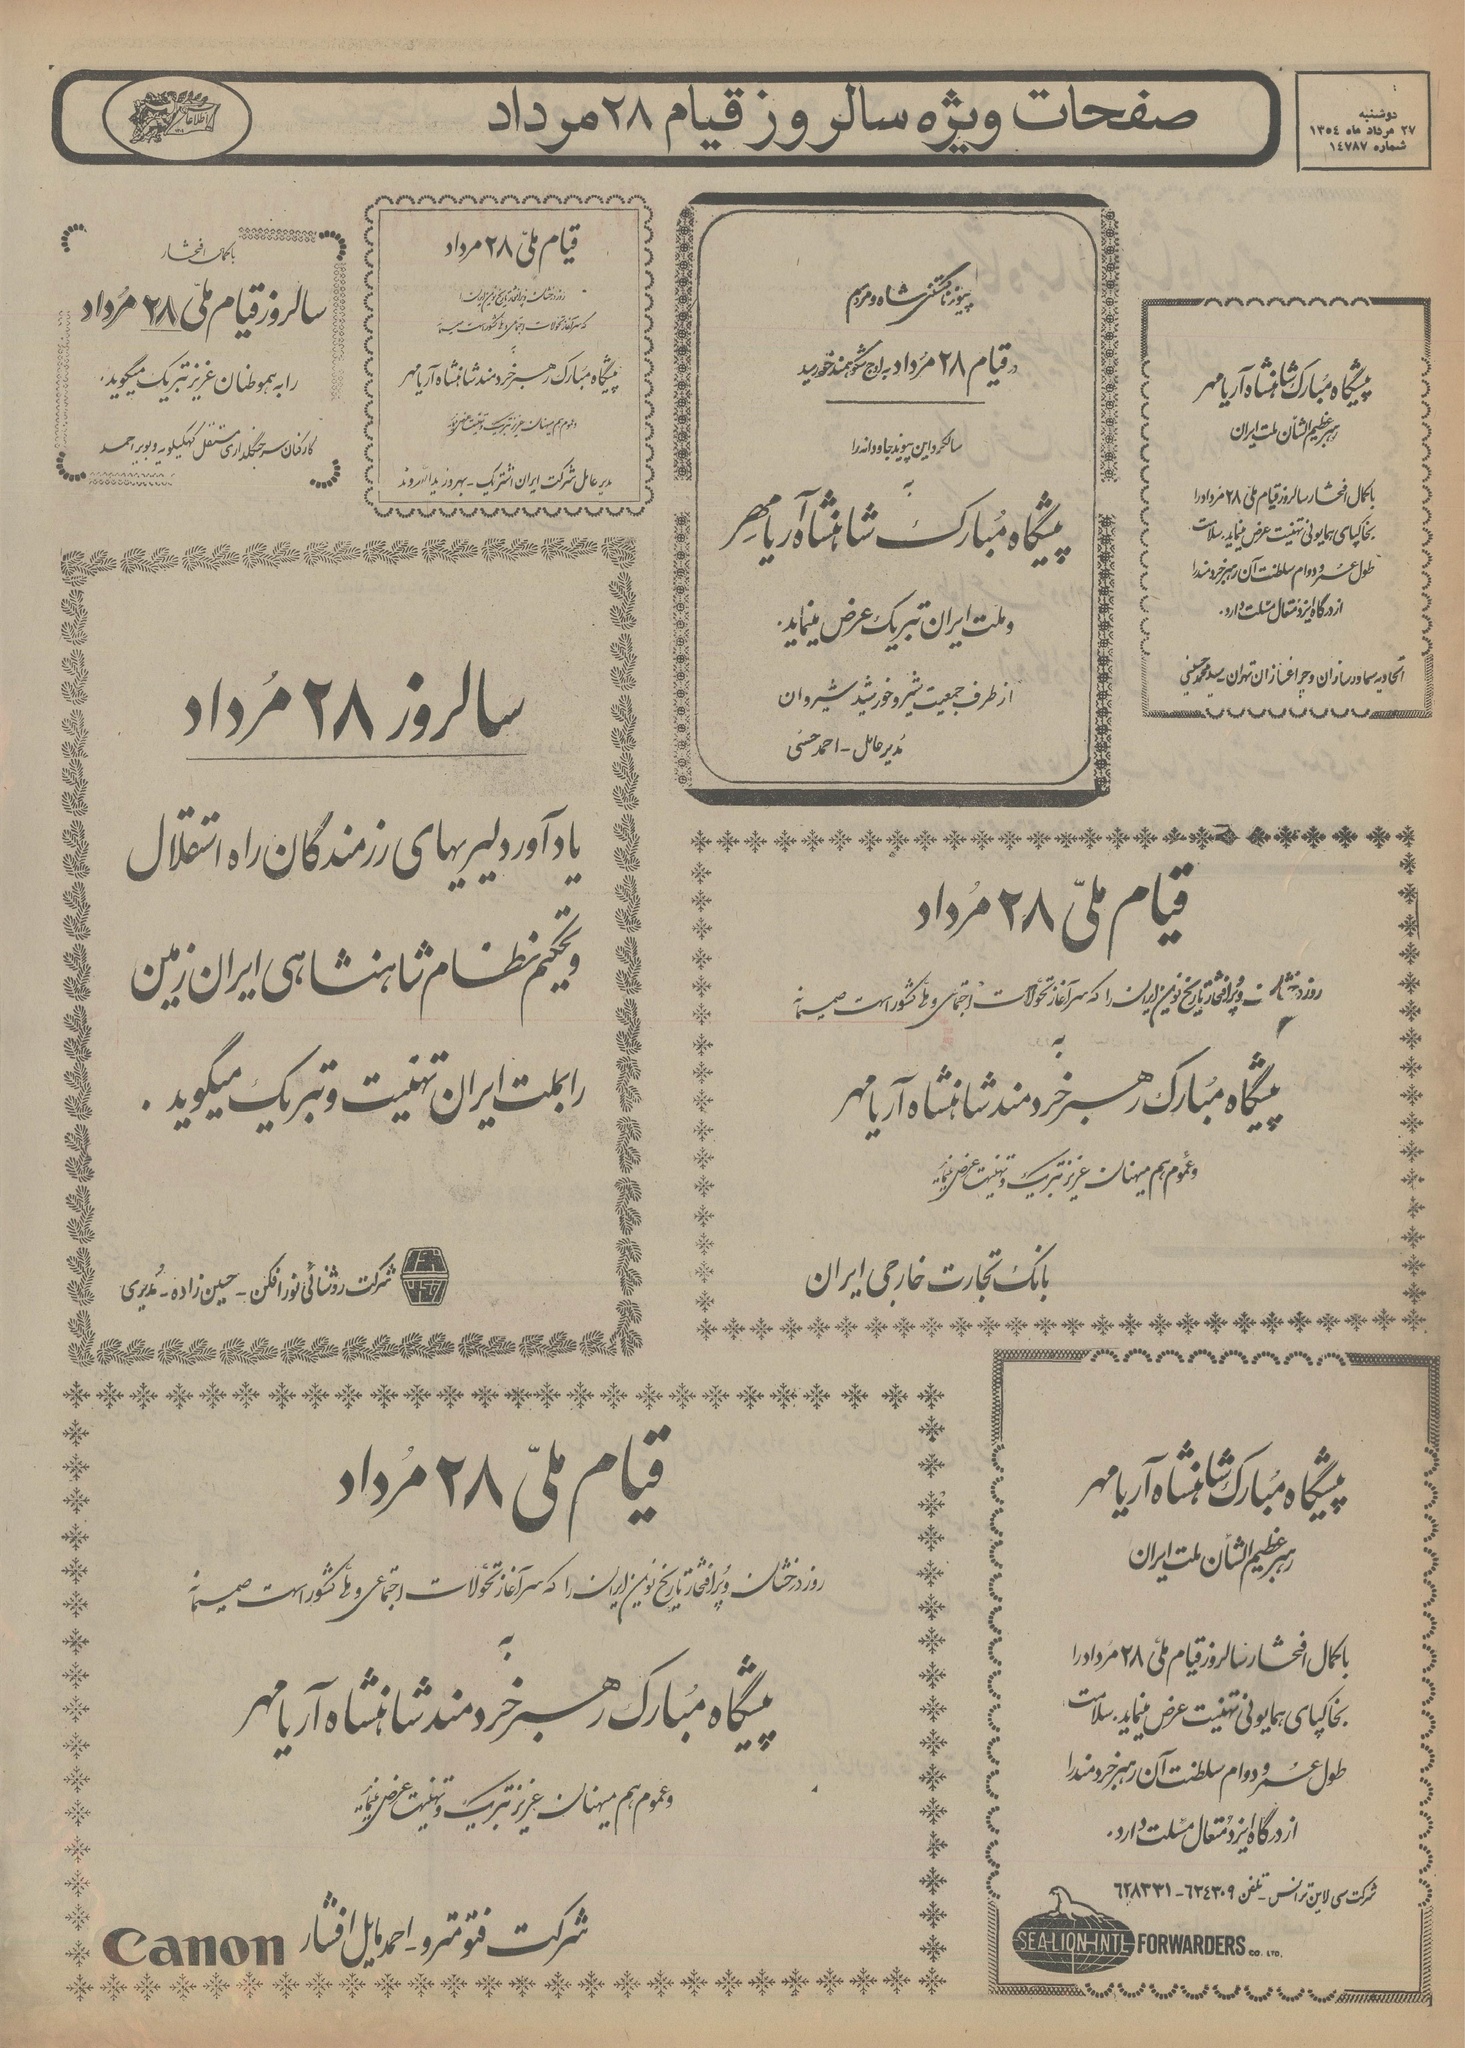 دوشنبه
۲۷ مرداد ماه ۱۳۵۴
شماره ۱٤۷۸۷
صفحات ویژه سالروز قیام ۲۸ مرداد
اطلاعات
پیشگاه مبارک شاهنشاه آریامهر
رهبر عظیم الشأن ملت ایران
با کمال افتخار سالروز قیام ملی ۲۸ مرداد را
بخاکپای همایونی تهنیت عرض مینماید. سلامت
طول عمر و دوام سلطنت آن رهبر خردمند را
از درگاه ایزد متعال مسئلت دارد.
اتحادیه سماورسازان و چراغسازان تهران - سید محمد حسینی
پیوند ناگسستنی شاه و مردم
در قیام ۲۸ مرداد به اوج شکوهمند خود رسید
سالگرد این پیوند جاودانه را
به
پیشگاه مبارک شاهنشاه آریامهر
و ملت ایران تبریک عرض مینماید.
از طرف جمعیت شیر و خورشید شیروان
مدیر عامل - احمد
قیام ملی ۲۸ مرداد
روز درخشان و پرافتخار تاریخ نوین ایران را
که سرآغاز تحولات اجتماعی و ملی کشور است صمیمانه
به
پیشگاه مبارک رهبر خردمند شاهنشاه آریامهر
و عموم هم میهنان عزیز تبریک و تهنیت عرض مینماید
مدیر عامل شرکت ایران الکتریک - بهروز یداله وند
با کمال افتخار
سالروز قیام ملی ۲۸ مرداد
را به هموطنان عزیز تبریک میگوید.
کارکنان سرجنگلداری مستقل کهکیلویه و بویراحمد
سالروز ۲۸ مرداد
یادآور دلیریهای رزمندگان راه استقلال
و تحکیم نظام شاهنشاهی ایران زمین
را بملت ایران تهنیت و تبریک میگوید.
شرکت روشنائی نورافکن - حسین زاده - مدیری
قیام ملی ۲۸ مرداد
روز درخشان و پرافتخار تاریخ نوین ایران را که سرآغاز تحولات اجتماعی و ملی کشور است صمیمانه
به
پیشگاه مبارک رهبر خردمند شاهنشاه آریامهر
و عموم هم میهنان عزیز تبریک و تهنیت عرض مینماید
بانک تجارت خارجی ایران
پیشگاه مبارک شاهنشاه آریامهر
رهبر عظیم الشأن ملت ایران
با کمال افتخار سالروز قیام ملی ۲۸ مرداد را
بخاکپای همایونی تهنیت عرض مینماید. سلامت
طول عمر و دوام سلطنت آن رهبر خردمند را
از درگاه ایزد متعال مسئلت دارد.
شرکت سی لاین ترانس - تلفن ۶۲۴۳۰۹ - ۶۲۸۳۳۱
SEA-LION-INTL FORWARDERS CO. LTD.
قیام ملی ۲۸ مرداد
روز درخشان و پرافتخار تاریخ نوین ایران را که سرآغاز تحولات اجتماعی و ملی کشور است صمیمانه
به
پیشگاه مبارک رهبر خردمند شاهنشاه آریامهر
و عموم هم میهنان عزیز تبریک و تهنیت عرض مینماید
شرکت فتومترو - احمد مایل افشار
Canon